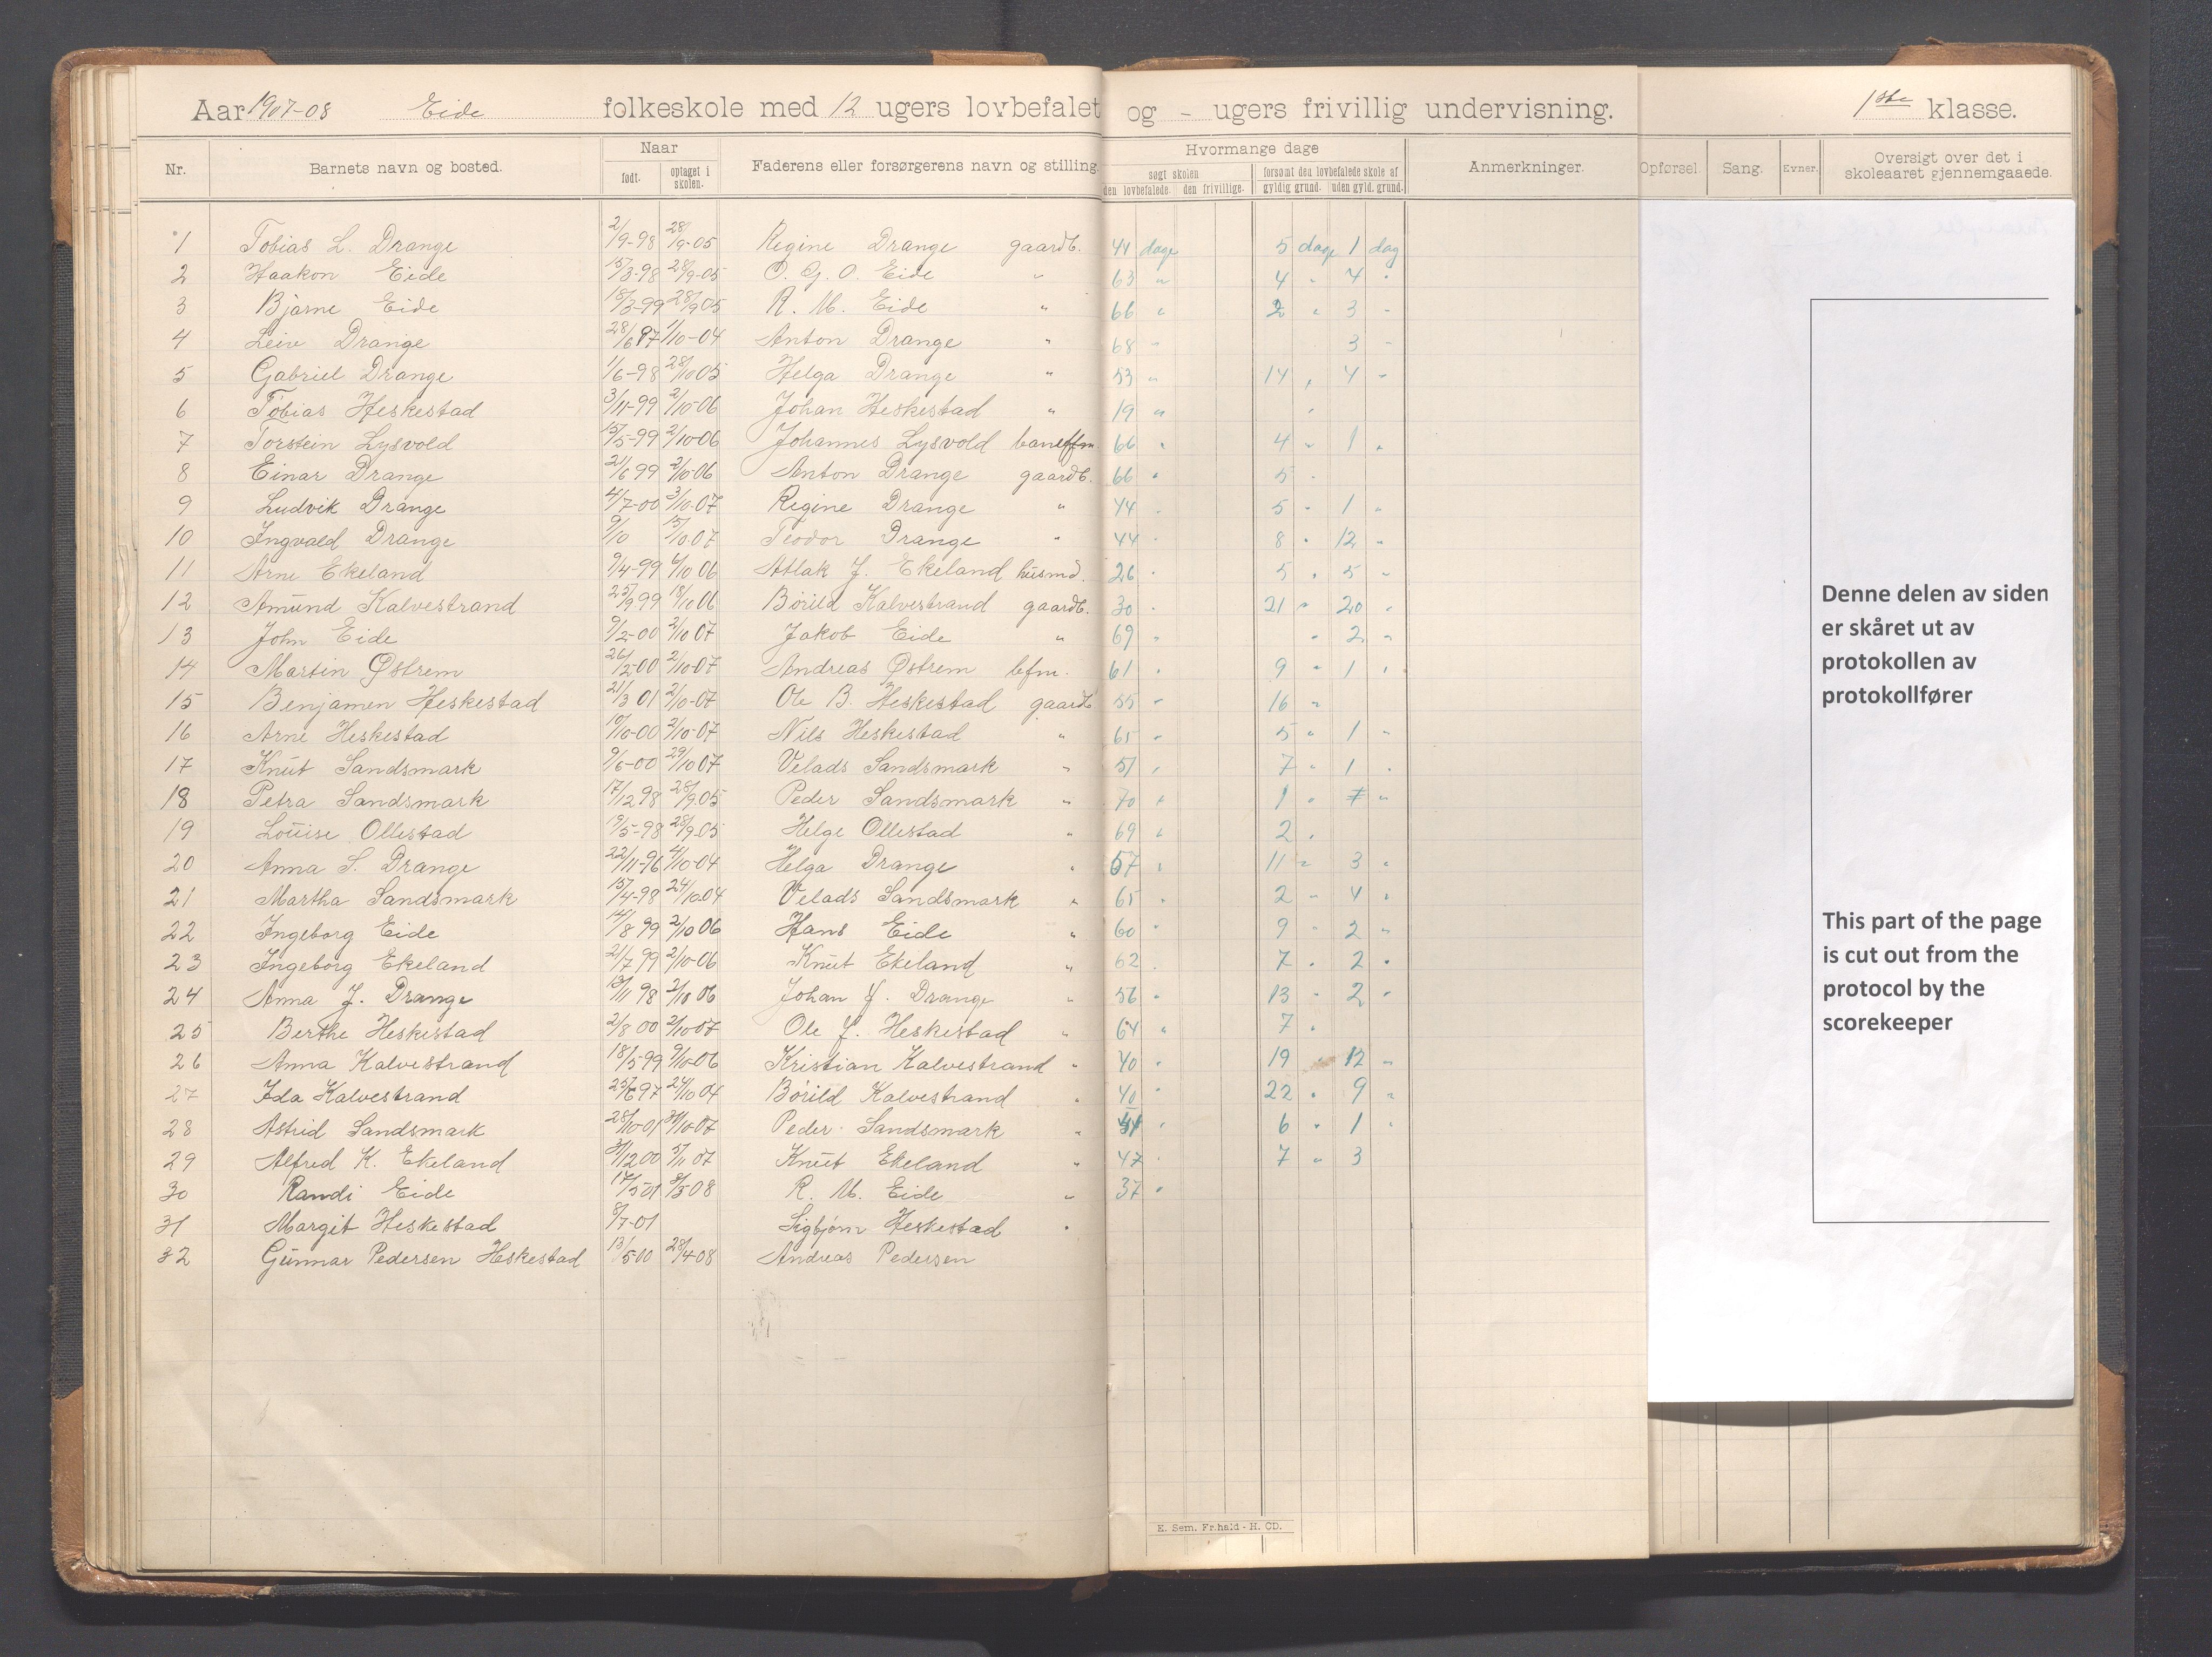 Aar 1907-08 Eide folkeskole med 12 ugers lovbefalet og - ugers frivillig undervisning. 1ste klasse.
Nr. Barnets navn og bosted. Naar Faderens eller forsørgerens navn og stilling. Hvormange dage Anmerkninger. Opførsel. Sang. Evner. Oversigt over det i skoleaaret gjennemgaaede.
født. optaget i skolen. søgt skolen forsømt den lovbefalede skole af
den lovbefalede. den frivillige. gyldig grund. uden gyld. grund.
1 Tobias L. Drange 2/9-98 28/9-05 Regine Drange gaardb. 44 dage 5 dage 1 dag
2 Haakon Eide 15/3-98 28/9-05 O. G. O. Eide " 63 " 4 " 4 "
3 Bjarne Eide 18/3-99 28/9 05 R. M. Eide " 66 " 2 " 3 "
4 Leiv Drange 28/6 97 1/10-04 Anton Drange " 68 " 3 "
5 Gabriel Drange 1/6-98 28/10 05 Helga Drange " 53 " 14 , 4 "
6 Tobias Heskestad 3/11-99 2/10-06 Johan Heskestad " 19 "
7 Torstein Lysvold 15/5-99 2/10-06 Johannes Lysvold 66 " 4 " 1 "
8 Einar Drange 21/6 99 2/10-06 Anton Drange gaardb. 66 " 5 "
9 Ludvik Drange 4/7-00 3/10-07 Regine Drange " 44 " 5 " 1 "
10 Ingvald Drange 9/10 15/10.07 Teodor Drange " 44 " 8 " 12 "
11 Arne Ekeland 9/4-99 4/10 06 Atlak J. Ekeland husmd. 26 " 5 " 5 "
12 Amund Kalvestrand 25/9 99 18/10 06 Børild Kalvestrand gaardb. 30 " 21 " 20 "
13 John Eide 9/2-00 2/10 07 Jakob Eide " 69 " " 2 "
14 Martin Østrem 26/2-00 2/10-07 Andreas Østrem bfm. 61 " 9 " 1 "
15 Benjamen Heskestad 21/3 01 2/10-07 Ole B. Heskestad gaardb 55 " 16 "
16 Arne Heskestad 10/10-00 2/10-07 Nils Heskestad " 65 " 5 " 1 "
17 Knut Sandsmark 9/6-00 29/10 07 Velads Sandsmark " 51 " 7 " 1 "
18 Petra Sandsmark 17/12 98 28/9.05 Peder Sandsmark " 70 " 1 " 7 "
19 Louise Ollestad 19/5-98 28/9.05 Helge Ollestad " 69 " 2 "
20 Anna S. Drange 22/11-96 4/10-04 Helga Drange " 57 " 11 " 3 "
21 Martha Sandsmark 15/4-98 24/10.04 Velads Sandsmark " 65 " 2 " 4 "
22 Ingeborg Eide 14/8 99 2/10 06 Hans Eide " 60 " 9 " 2 "
23 Ingeborg Ekeland 21/7 99 2/10-06 Knut Ekeland " 62 " 7 " 2 "
24 Anna J. Drange 13/11 98 2/10 06 Johan J. Drange " 56 " 13 " 2 "
25 Berthe Heskestad 2/8 00 2/10 07 Ole J. Heskestad " 64 " 7 "
26 Anna Kalvestrand 18/5-99 9/10-06 Kristian Kalvestrand " 40 " 19 " 12 "
27 Ida Kalvestrand 25/6 97 24/10 04 Børild Kalvestrand " 40 " 22 " 9 "
28 Astrid Sandsmark 28/10-01 31/10-07 Peder Sandsmark " " 6 " 1 "
29 Alfred K. Ekeland 31/12 00 5/11 07 Knut Ekeland " 47 " 7 " 3
30 Randi Eide 17/5 01 8/5 08 R. M. Eide " 37 "
31 Margit Heskestad 8/7-01 Sigbjørn Heskestad "
32 Gunnar Pedersen Heskestad 13/5-00 28/4-08 Andreas Pedersen
E. Sem. Fr.hald - H. OD.
Denne delen av siden
er skåret ut av
protokollen av
protokollfører
This part of the page
is cut out from the
protocol by the
scorekeeper